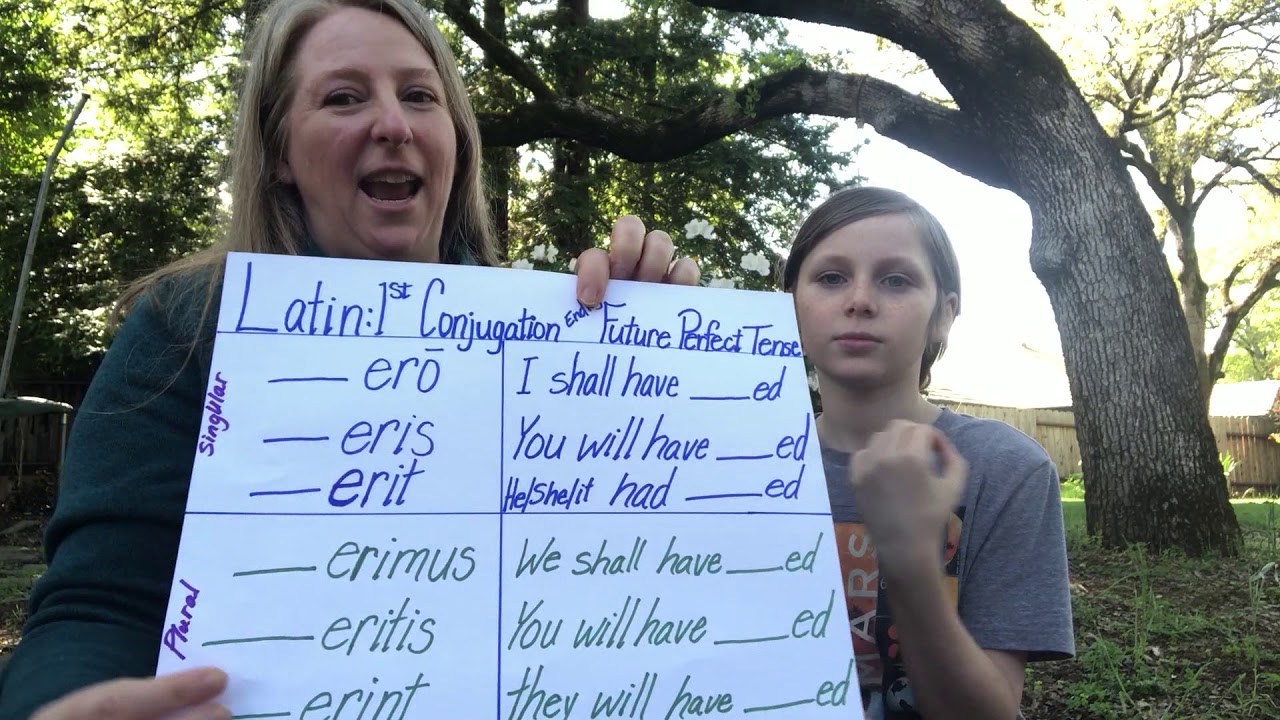 Latin: 1st Conjugation End Future Perfect Tense
Singular
___ erō I shall have ___ed
___ eris You will have ___ed
___ erit He/She/it had ___ed
Plural
___ erimus We shall have ___ed
___ eritis You will have ___ed
___ erint they will have ___ed
MARS